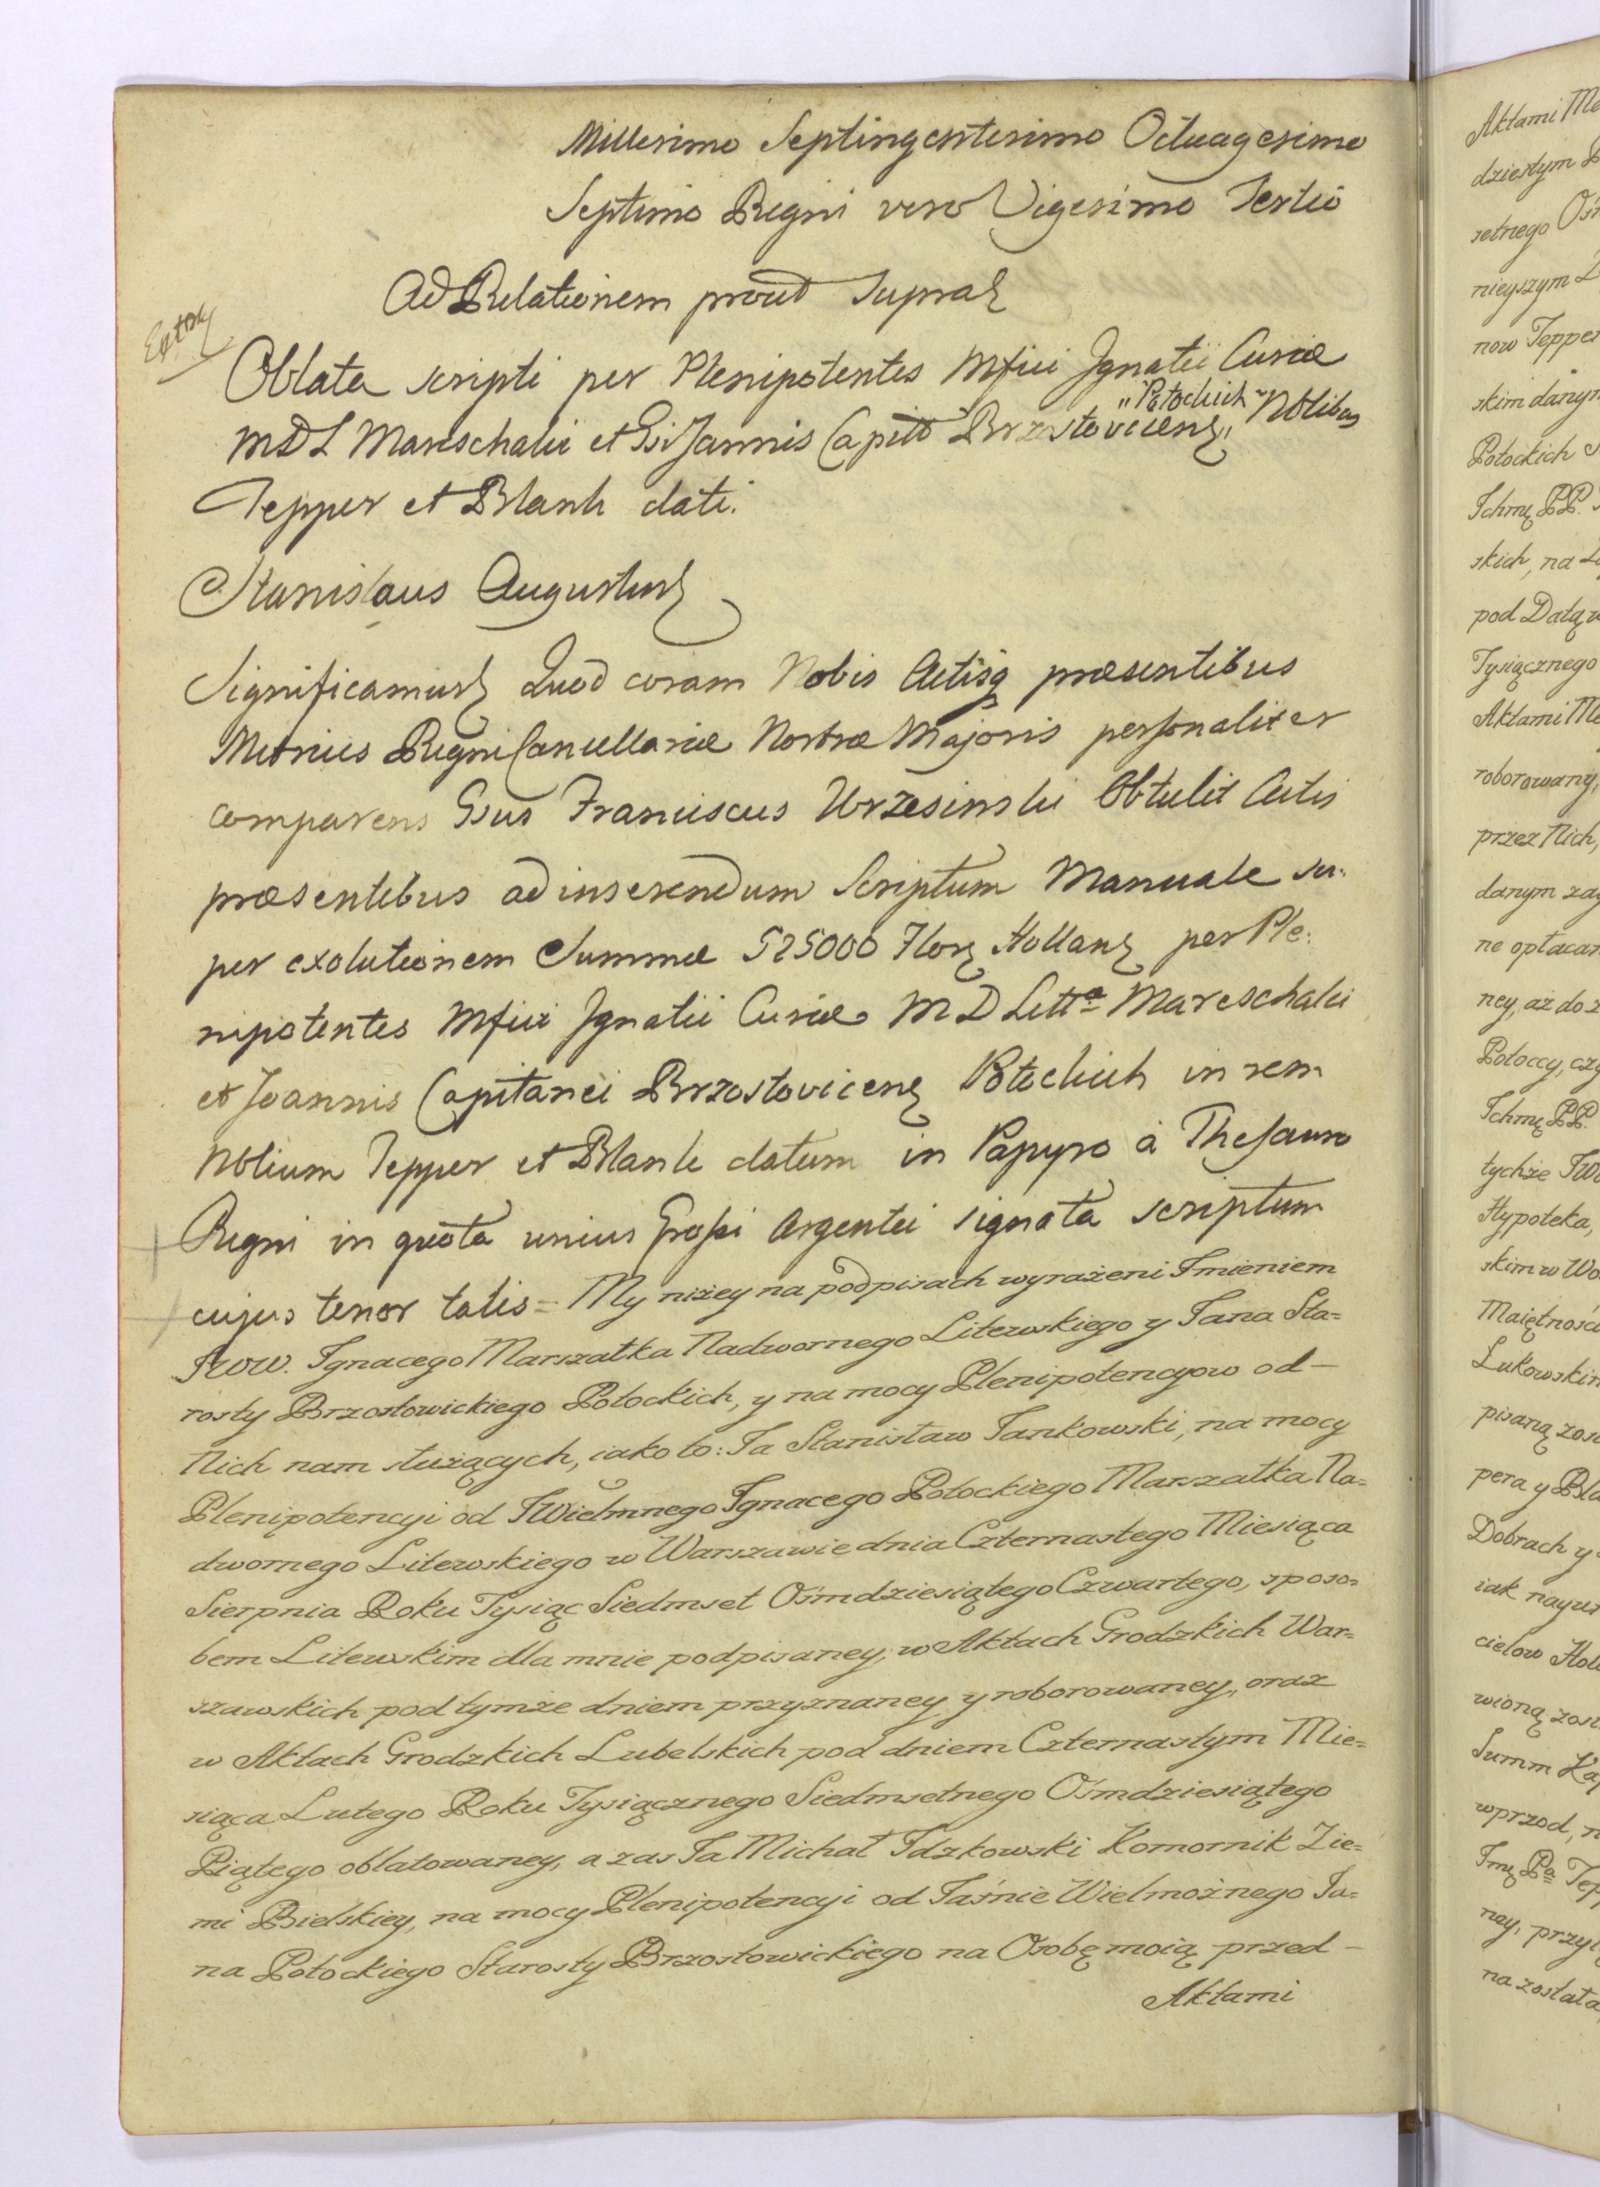 Millesimo Septingentesimo Octuagesimo
Septimo Regni vero Vigesimo Tertio
Ad Relationem prout Supra
Oblata scripti per Plenipotentes Mfici Ignatii Curiæ
"Potockich" Nobilibus
MDL Mareschalci et Gsi Joannis Capitt Brzostovicens
Tepper et Blank dati.
Stanislaus Augustus
Significamus Quod coram Nobis Actisq præsentibus
Metrices Regni Cancellariæ Nostræ Majoris personaliter
comparens Gsus Franciscus Wrzesinski Obtulit Actis
præsentibus ad inserendum Scriptum Manuale su-
per exolutionem Summæ 525000 Flor Holland per Ple-
nipotentes Mfici Ignatii Curiæ M D Litt Mareschalci
et Joannis Capitanei Brzostovicens Potockich in rem
Nobilium Tepper et Blank datum in Papyro à Thesauro
Regni in quota unius Grossi Argentei signata scriptum
cujus tenor talis = My niżey na podpisach wyrażeni Imieniem
JWW. Ignacego Marszałka Nadwornego Litewskiego y Jana Sta=
rosty Brzostowickiego Potockich, y na mocy Plenipotencyow od –
Nich nam służących, iako to: Ja Stanisław Jankowski, na mocy
Plenipotencyi od JWielmnego Ignacego Potockiego Marszałka Na=
dwornego Litewskiego w Warszawie dnia Czternastego Miesiąca
Sierpnia Roku Tysiąc Siedmset Ośmdziesiątego Czwartego, sposo=
bem Litewskim dla mnie podpisaney, w Aktach Grodzkich War=
szawskich pod tymże dniem przyznaney y roborowaney, oraz
w Aktach Grodzkich Lubelskich pod dniem Czternastym Mie=
siąca Lutego Roku Tysiącznego Siedmsetnego Ośmdziesiątego
Piątego oblatowaney, a zas Ja Michał Idzkowski Komornik Zie=
mi Bielskiey, na mocy Plenipotencyi od Jaśnie Wielmożnego Ja=
na Potockiego Starosty Brzostowickiego na Osobę moią przed –
Aktami
Aktami
dziestym
setnego
nieyszym
now Tepper
skim danym
Potockich
Ichmę PP.
skich, na
pod Datą
Tysiącznego
Aktami
roborowany,
przez Nich,
danym
ne opłacan
ney, aż do
Potoccy,
Ichmę PP.
tychże
Hypoteka,
skim w
Maiętności
Lukowskim
pisaną
pera y
Dobrach y
iak
cielow
wioną
Summ
wprzod,
Imę Pa
ney,
na została